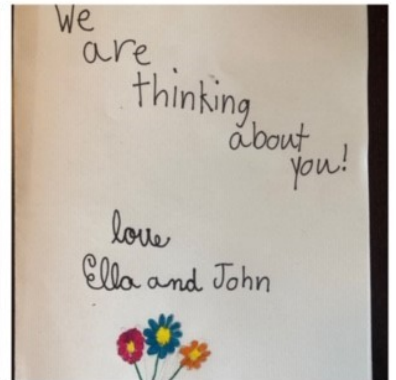 We
are
thinking
about
you!
love
Ella and John